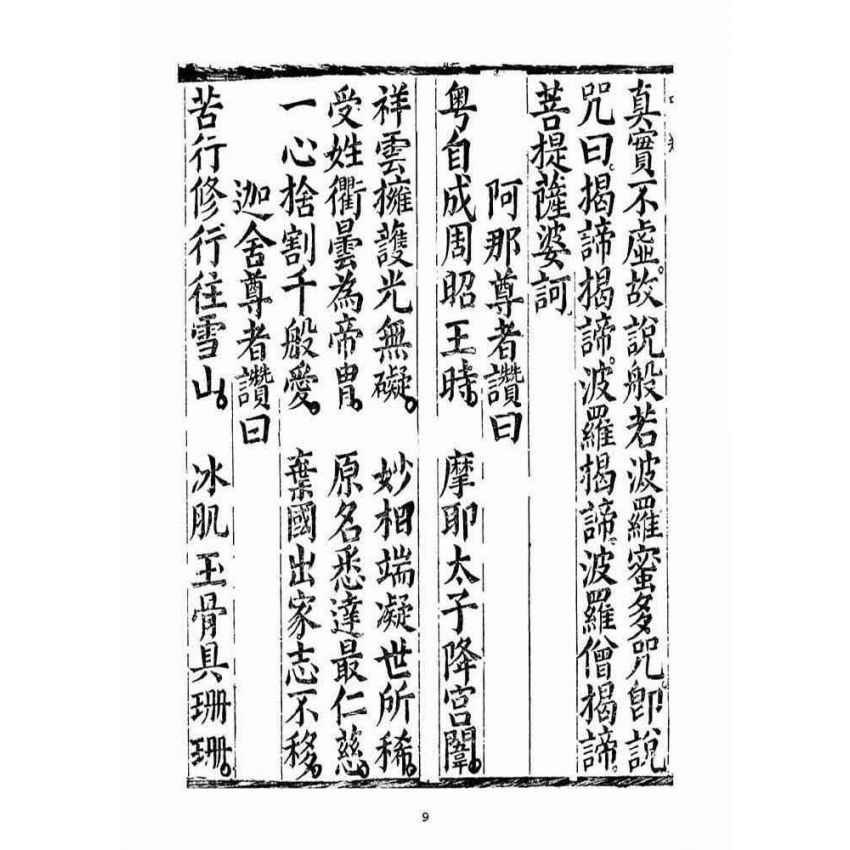 真實不虛。故說般若波羅蜜多咒。卽說
咒曰。揭諦揭諦。波羅揭諦。波羅僧揭諦。
菩提薩婆訶
阿那尊者讚曰
粤自成周昭王時。 摩耶太子降宮闈。
祥雲擁護光無礙。 妙相端凝世所稀。
受姓衢曇為帝冑。 原名悉達最仁慈。
一心捨割千般愛。 棄國出家志不移。
迦舍尊者讚曰
苦行修行往雪山。 冰肌玉骨具珊珊。
9